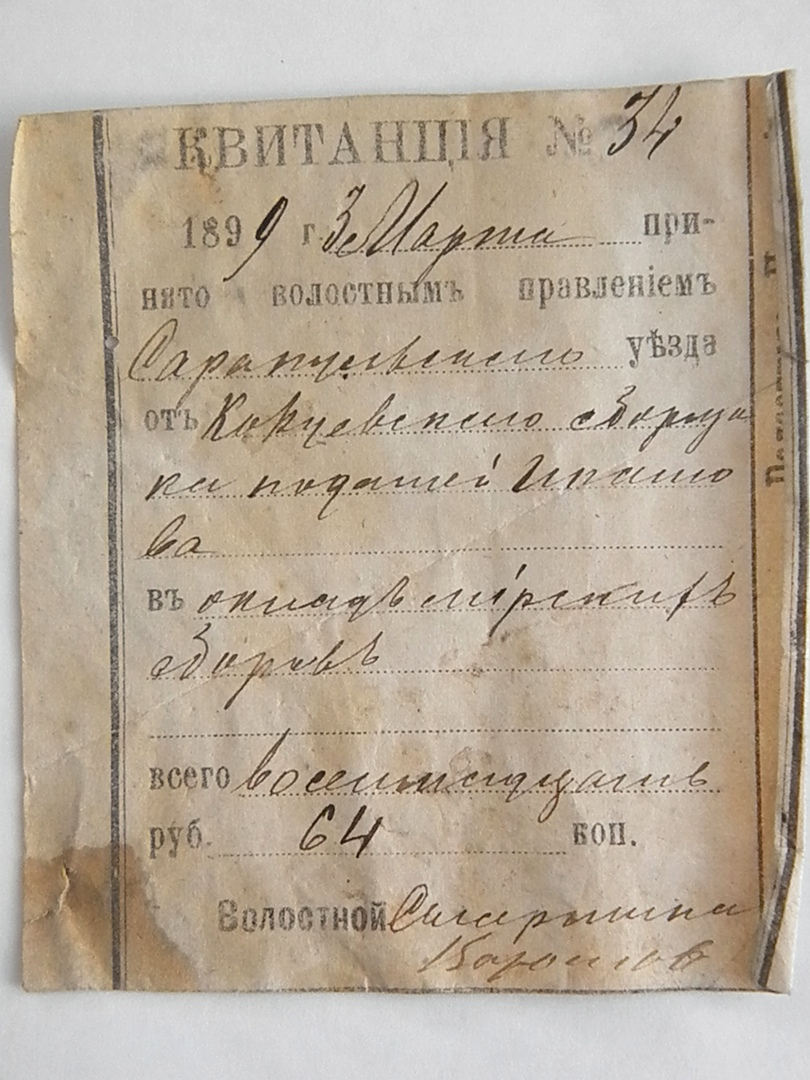 КВИТАНЦІЯ № 34
1899 г. 3 Марта при-
нято волостнымъ правленіемъ
Сарапульскаго уѣзда
отъ сборщи
ка податей Игнато
ва
въ окладъ мірскихъ
сборовъ
всего восемнадцать
руб. 64 коп.
Волостной Старшина